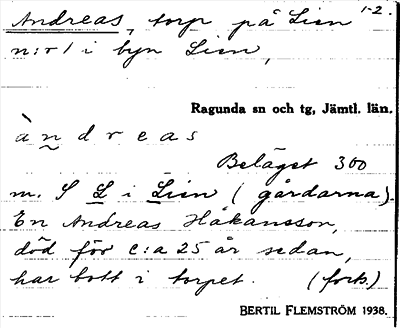 Andreas, torp på Lien 1-2.
n:r 1 i byn Lien,
Ragunda sn och tg, Jämtl. län.
àndreas
Beläget 300
m. S L i Lien (gårdarna).
En Andreas Håkansson,
död för c:a 25 år sedan,
har bott i torpet. (forts.)
BERTIL FLEMSTRÖM 1938.